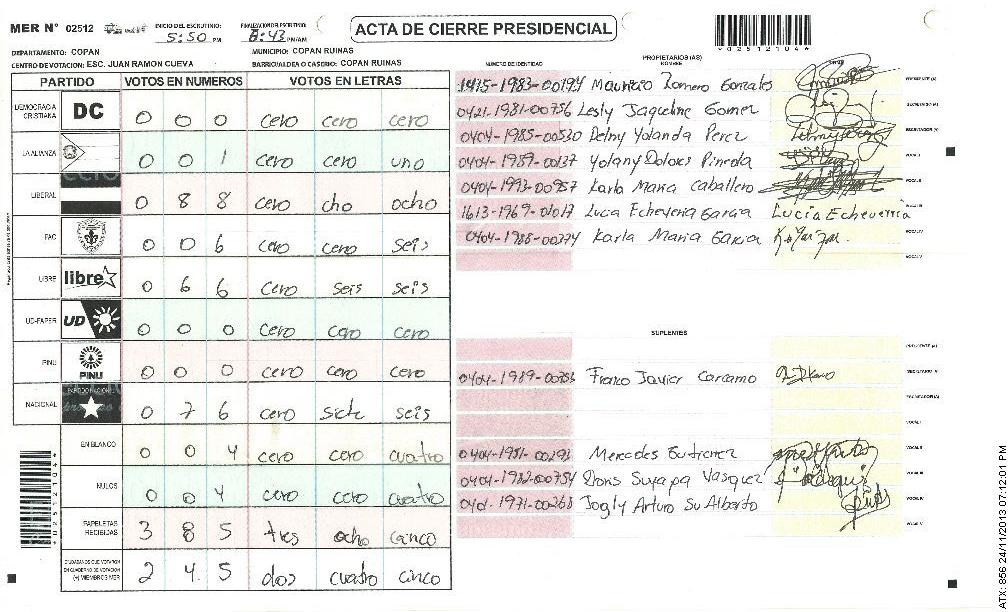 MER N° 02512 INICIO DEL ESCRUTINIO: 5:50 PM FINALIZACION DEL ESCRUTINIO: 8:43 PM/AM ACTA DE CIERRE PRESIDENCIAL
DEPARTAMENTO: COPAN MUNICIPIO: COPAN RUINAS
CENTRO DE VOTACION: ESC. JUAN RAMON CUEVA BARRIO/ALDEA O CASERIO: COPAN RUINAS
PARTIDO VOTOS EN NUMEROS VOTOS EN LETRAS
DEMOCRACIA CRISTIANA DC 0 0 0 cero cero cero
LA ALIANZA 0 0 1 cero cero uno
LIBERAL 0 8 8 cero cho ocho
FAC 0 0 6 cero cero seis
LIBRE libre 0 6 6 cero seis seis
UD-FAPER UD 0 0 0 cero cero cero
PINU PINU 0 0 0 cero cero cero
NACIONAL 0 7 6 cero siete seis
EN BLANCO 0 0 4 cero cero cuatro
NULOS 0 0 4 cero cero cuatro
PAPELETAS RECIBIDAS 3 8 5 tres ocho cinco
CIUDADANOS QUE VOTARON EN CUADERNO DE VOTACION (+) MIEMBROS MER 2 4 5 dos cuatro cinco
NUMERO DE IDENTIDAD PROPIETARIOS (AS) NOMBRE FIRMA
1415-1983-00194 Mauricio Romero Gonzales PRESIDENTE (A)
0421-1981-00756 Lesly Jaqueline Gomez SECRETARIO (A)
0404-1985-00530 Delmy Yolanda Perez ESCRUTADOR (A)
0404-1989-00137 Yolany Dolores Pineda VOCAL I
0404-1993-00957 Karla Maria Caballero VOCAL II
1613-1969-01017 Lucia Echeverria Garcia Lucia Echeverria VOCAL III
0404-1988-00374 Karla Maria Garcia VOCAL IV
VOCAL V
SUPLENTES
PRESIDENTE (A)
0404-1989-00756 Franco Javier Carcamo SECRETARIO (A)
ESCRUTADOR (A)
VOCAL I
0404-1951-00291 Mercedes Gutierrez VOCAL II
0404-1982-00754 Doris Suyapa Vasquez VOCAL III
0401-1971-00268 Jogly Arturo Su Alberto VOCAL IV
VOCAL V
02512104
ATX: 856 24/11/2013 07:12:01 PM